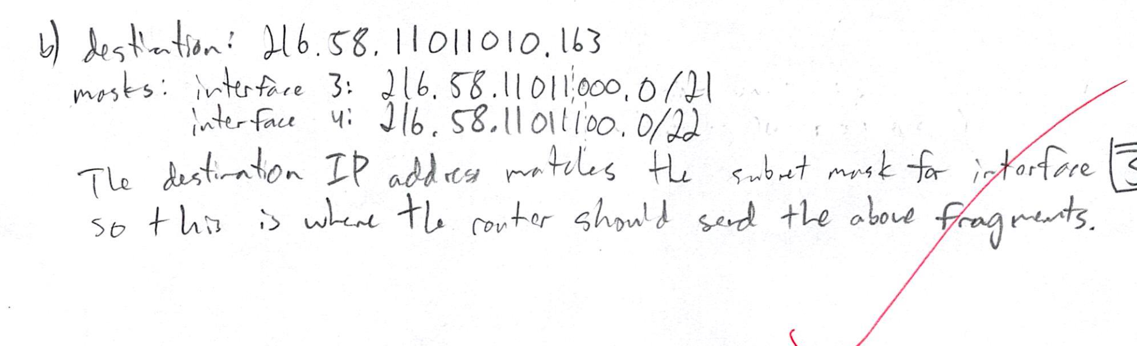 b) destination: 216.58.11011010.163
masks: interface 3: 216.58.11011000.0/21
interface 4: 216.58.11011100.0/22
The destination IP address matches the subnet mask for interface 3
so this is where the router should send the above fragments.